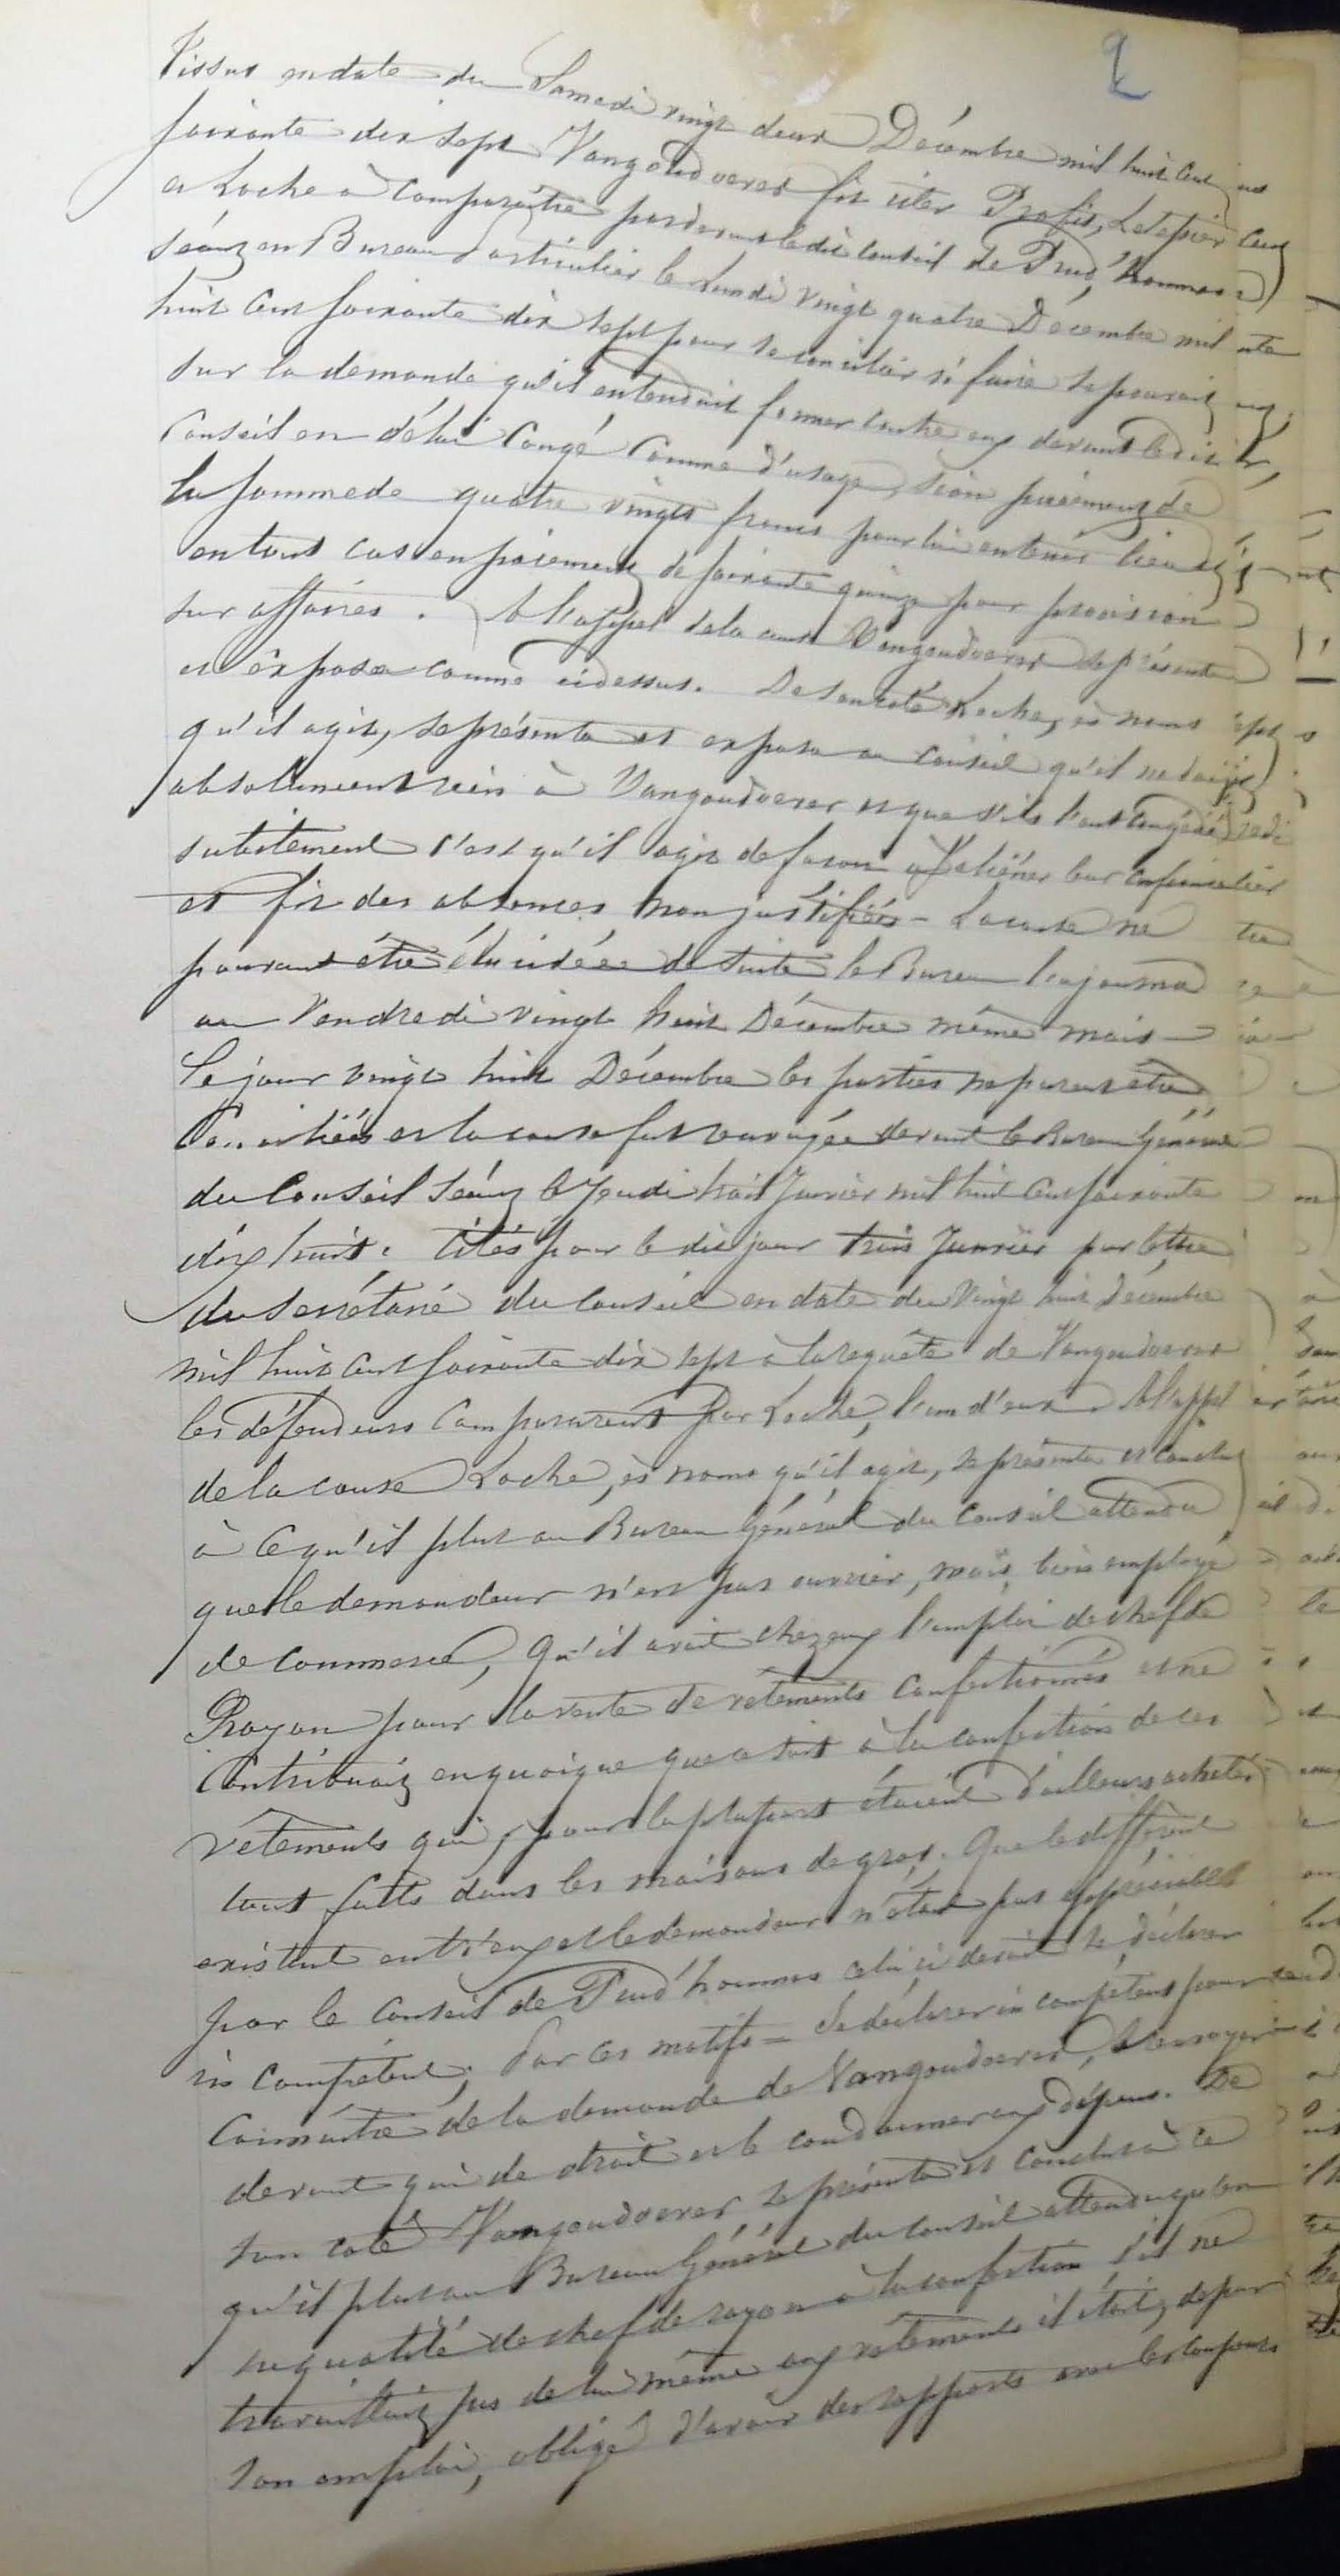 2
Tissus en date du Samedi vingt deux Décembre mil huit cent
soixante dix sept Vangoudoever fit citer Profit, Letessier
et Loche à comparaître pardevant le dit Conseil de Prud'hommes
séant en Bureau Particulier le Lundi vingt quatre Décembre mil
huit cent soixante dix sept pour se concilier si faire se pouvait
sur la demande qu'il entendait former contre eux devant le dit
Conseil en délai Congé Comme d'usage, sinon paiement de
la somme de quatre vingts francs pour lui en tenir lieu et
en tous cas en paiement de soixante quinze pour provision
sur affaires. A l'appel de la cause Vangoudoever se présenta
et exposa comme ci dessus. De son coté Loche, ès noms
qu'il agit, se présenta et exposa au Conseil qu'il ne doit
absolument rien à Vangoudoever et que s'ils l'ont congédié
subitement c'est qu'il agit de façon à s'aliéner leur
et fit des absences non justifiées - La cause ne
pouvant être élucidée de suite le Bureau l'ajourna
au Vendredi vingt huit Décembre même mois -
Le jour vingt huit Décembre les parties ne purent être
Conciliées et la cause fut renvoyée devant le Bureau Général
du Conseil séant le Jeudi trois Janvier mil huit cent soixante
dix huit. Cités pour le dit jour trois Janvier par lettre
du secrétaire du Conseil en date du vingt huit Décembre
mil huit cent soixante dix sept à la requête de Vangoudoever
les défendeurs Comparurent par Loche, l'un d'eux. A l'appel
de la cause Loche, ès noms qu'il agit, se présenta et conclut
à ce qu'il plut au Bureau Général du Conseil attendu
que le demandeur n'est pas ouvrier, mais bien employé
de Commerce, qu'il avait chez eux l'emploi de chef de
Rayon pour la vente de vêtements confectionnés et ne
Contribuait en quoique que ce soit à la confection de ces
vêtements qui, pour la plupart étaient d'ailleurs achetés
tout faits dans les maisons de gros. Que le différent
existant entr'eux et le demandeur n'étant pas appréciable
par le Conseil de Prud'hommes celui ci devait se déclarer
in compétent; Par ces motifs = Se déclarer in compétent pour
Connaître de la demande de Vangoudoever, le renvoyer
devant qui de droit et le condamner aux dépens. De
son coté Vangoudoever se présenta et conclut à ce
qu'il plut au Bureau Général du Conseil attendu qu'en
sa qualité de chef de rayon à la confection s'il ne
travaillait pas de lui même aux vêtements il était, de par
son emploi, obligé d'avoir des rapports avec les coupeurs